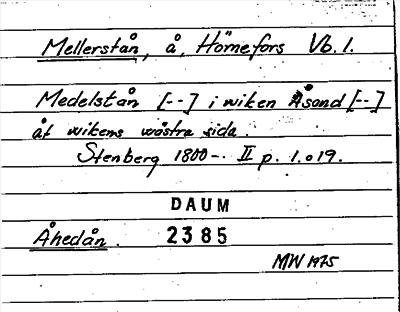 Mellerstån, å, Hörnefors Vb. l.
Medelstån [--] i wiken Åsand [--]
åt wikens wästra sida.
Stenberg 1800-. II p. 1.o 19.
DAUM
Åhedån. 2385
MW 1975